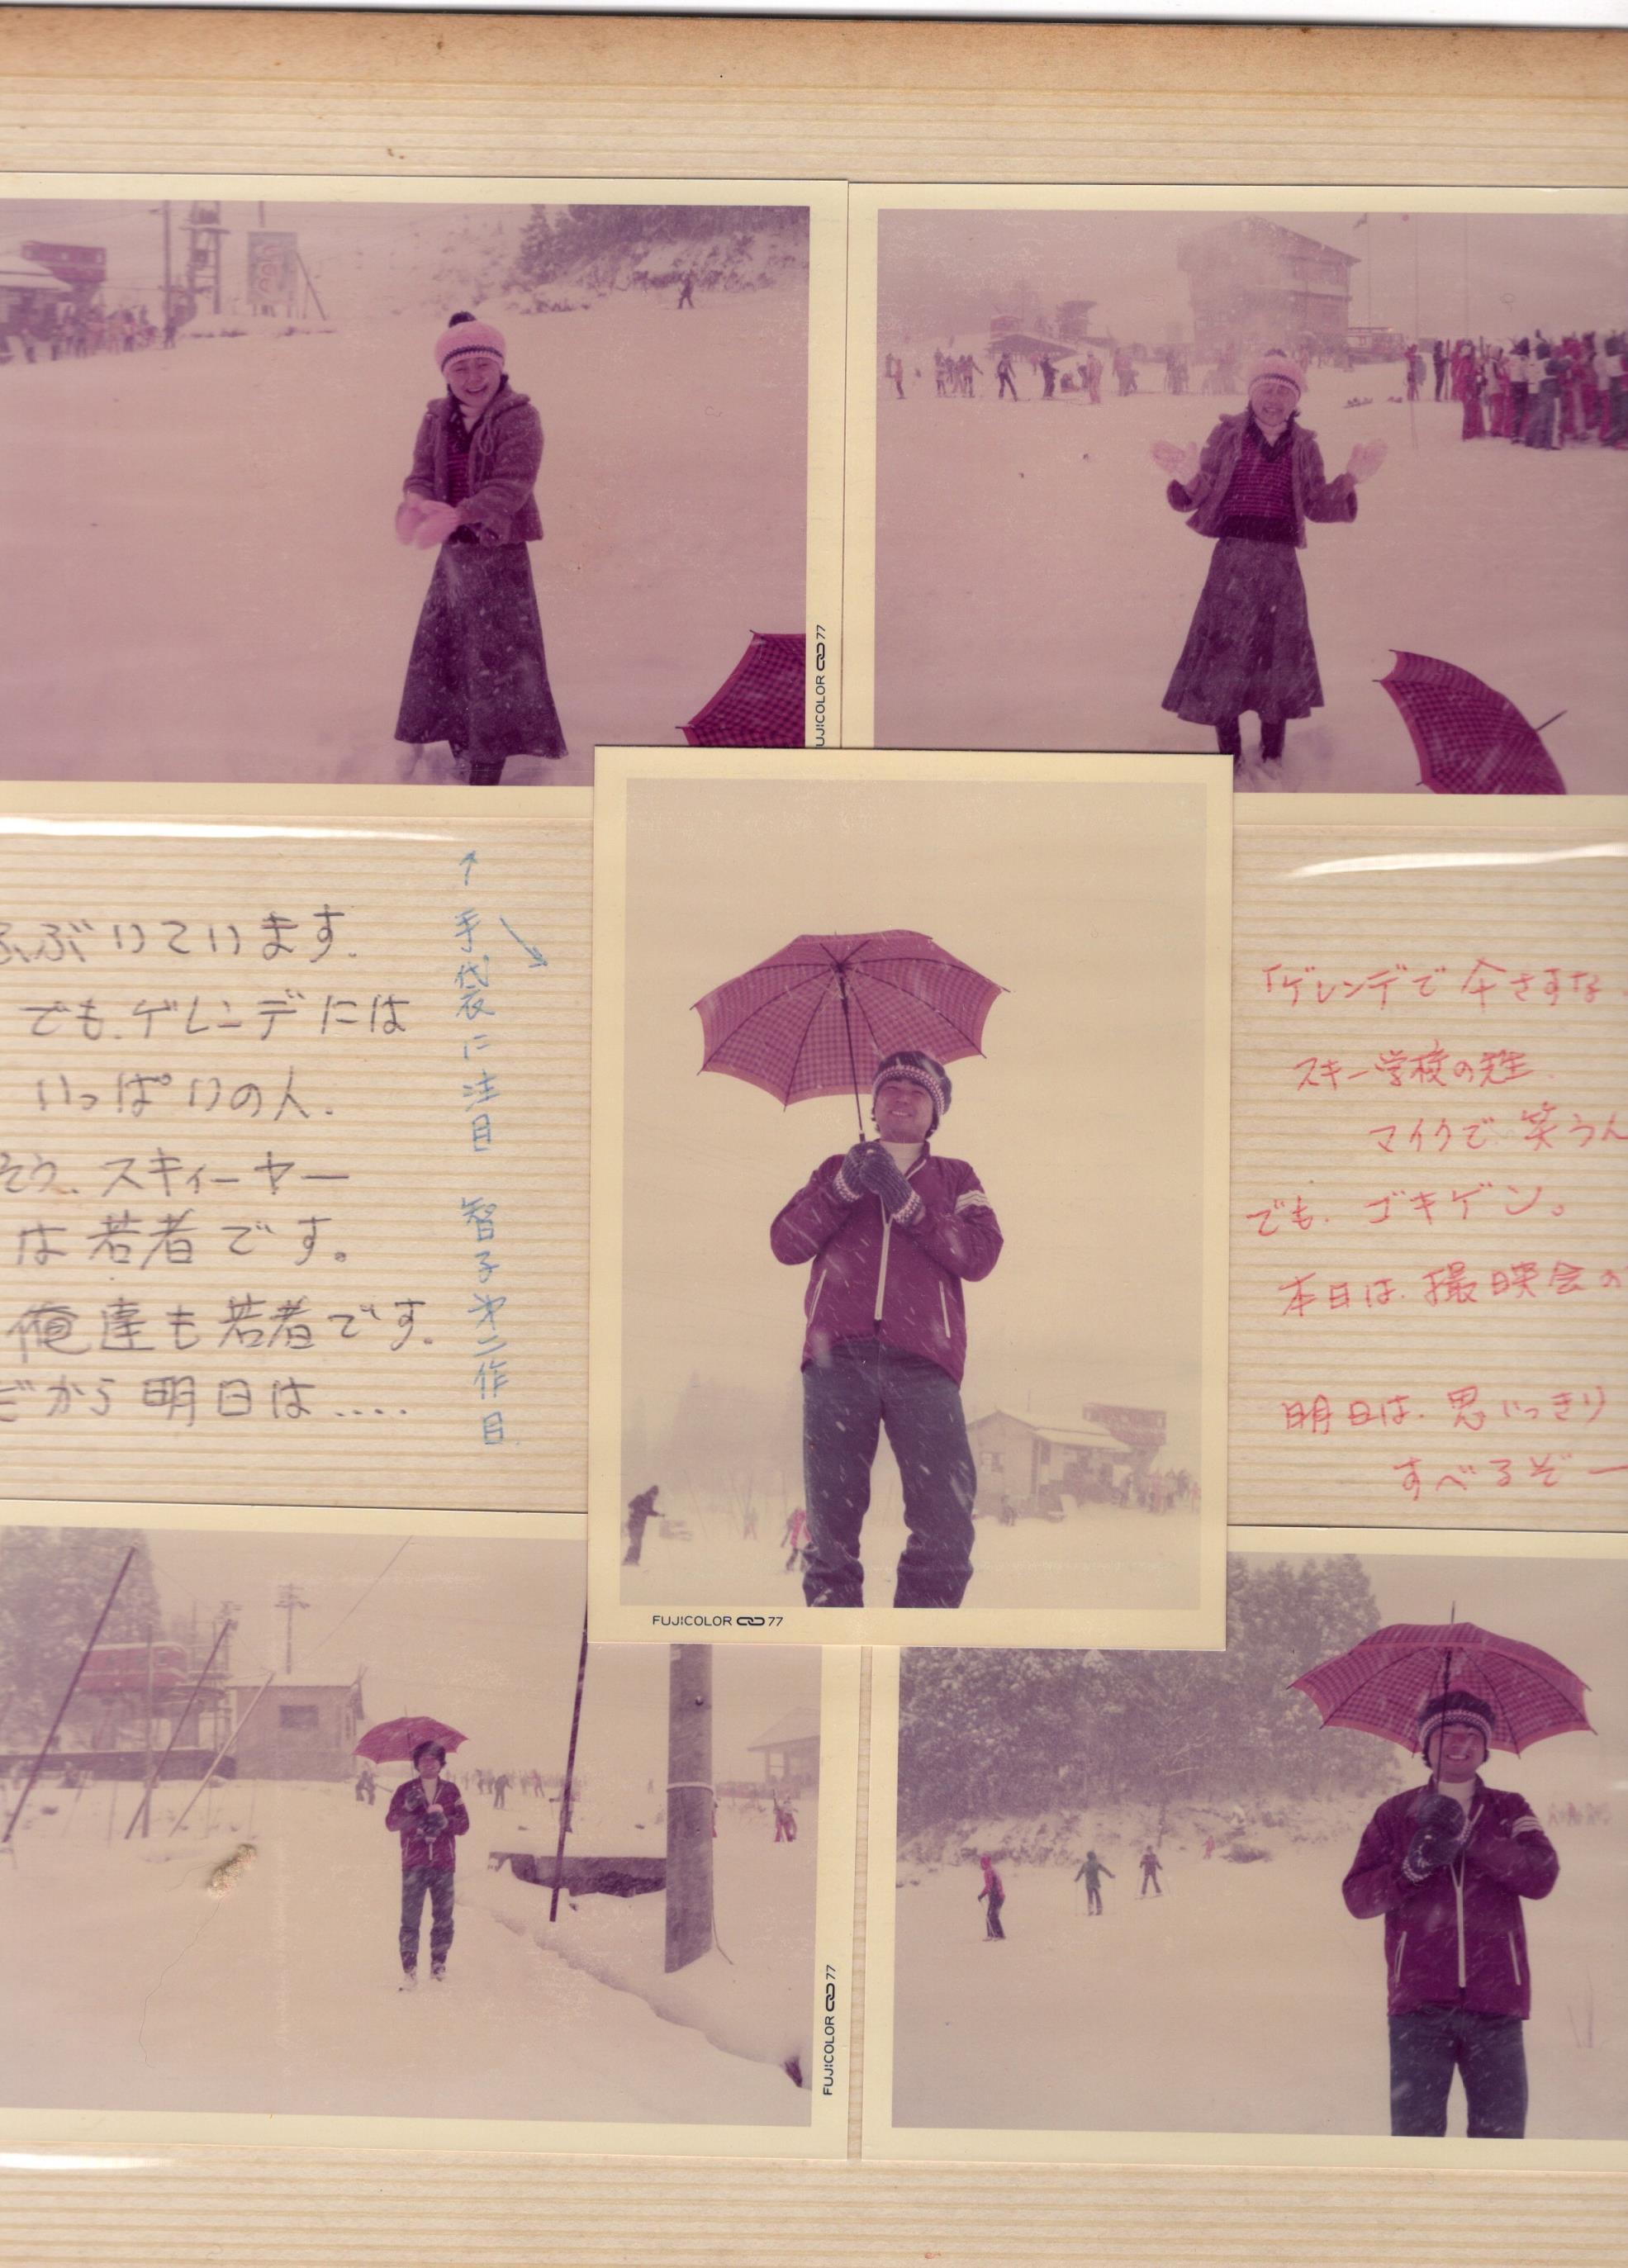 FUJICOLOR 77
ふぶいています.
でも.ゲレンデには
いっぱいの人.
そう.スキィーヤー
は若者です。
俺達も若者です.
だから明日は....
↑手袋に注目 智子才二作目
「ゲレンデで傘さすな
スキー学校の先生
マイクで笑う
でも.ゴキゲン。
本日は.撮映会の
明日は.思いっきり
すべるぞー
FUJICOLOR 77
FUJICOLOR 77